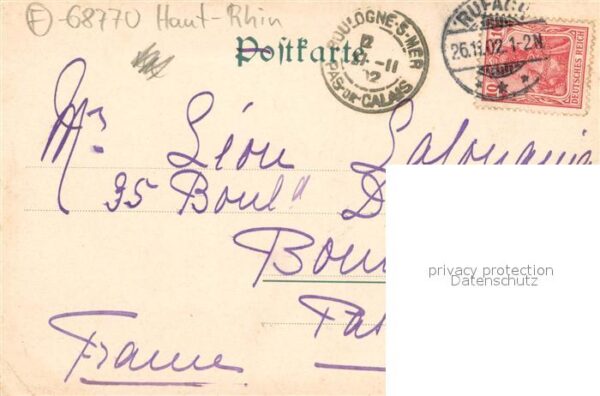 F-68770 Haut-Rhin
Postkarte
BOULOGNE-S-MER
PAS-DE-CALAIS
RUFACH
26.11.02.1-2N
DEUTSCHES REICH
10
Mr Léon
35 Boul d D
Bou
Pas
France
privacy protection
Datenschutz